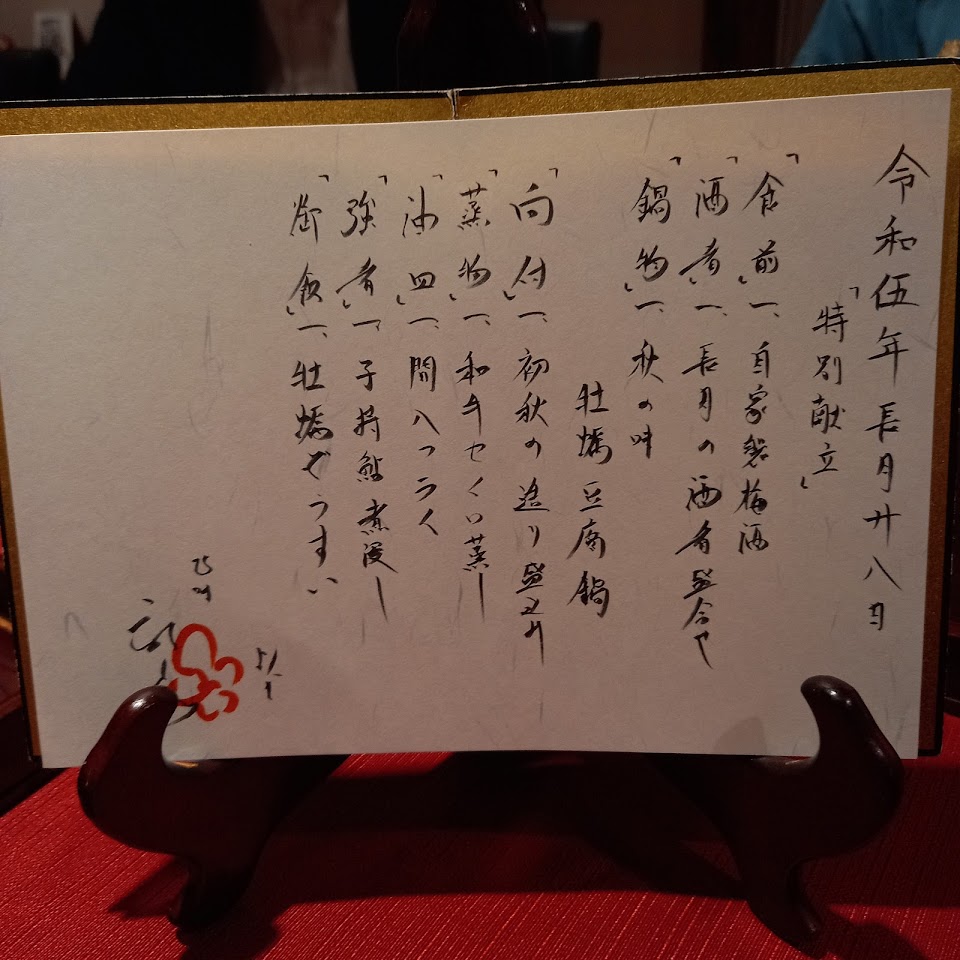 令和伍年長月廿八日
「特別献立」
「食前」一、自家製梅酒
「酒肴」一、長月の酒肴盛合せ
「鍋物」一、秋の味
牡蠣豆腐鍋
「向付」一、初秋の造り盛込み
「蒸物」一、和牛せいろ蒸し
「油皿」一、間八つらく
「強肴」一、子持鮎煮浸し
「御飯」一、牡蠣ぞうすい